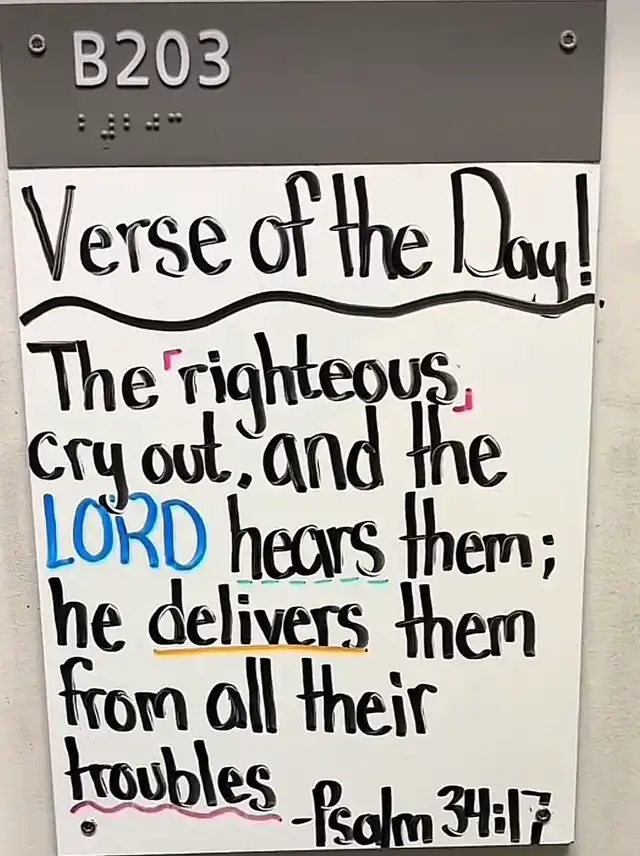 B203
Verse of the Day!
The「righteous」
cry out, and the
LORD hears them;
he delivers them
from all their
troubles
-Psalm 34:17